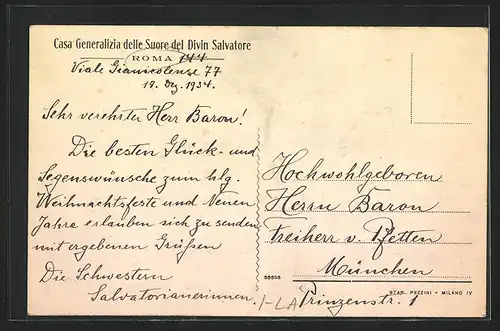 Casa Generalizia delle Suore del Divin Salvatore
ROMA 144
Viale Gianicolense 77
19. Dez. 1934.
Sehr verehrter Herr Baron!
Die besten Glück- und
Segenswünsche zum hlg.
Weihnachtsfeste und Neuen
Jahre erlauben sich zu senden
mit ergebenen Grüßen
Die Schwestern
Salvatorianerinnen.
Hochwohlgeboren
Herrn Baron
Freiherr v. Pfetten
München
Prinzenstr. 1
I-LA
STAB. PEZZINI - MILANO IV